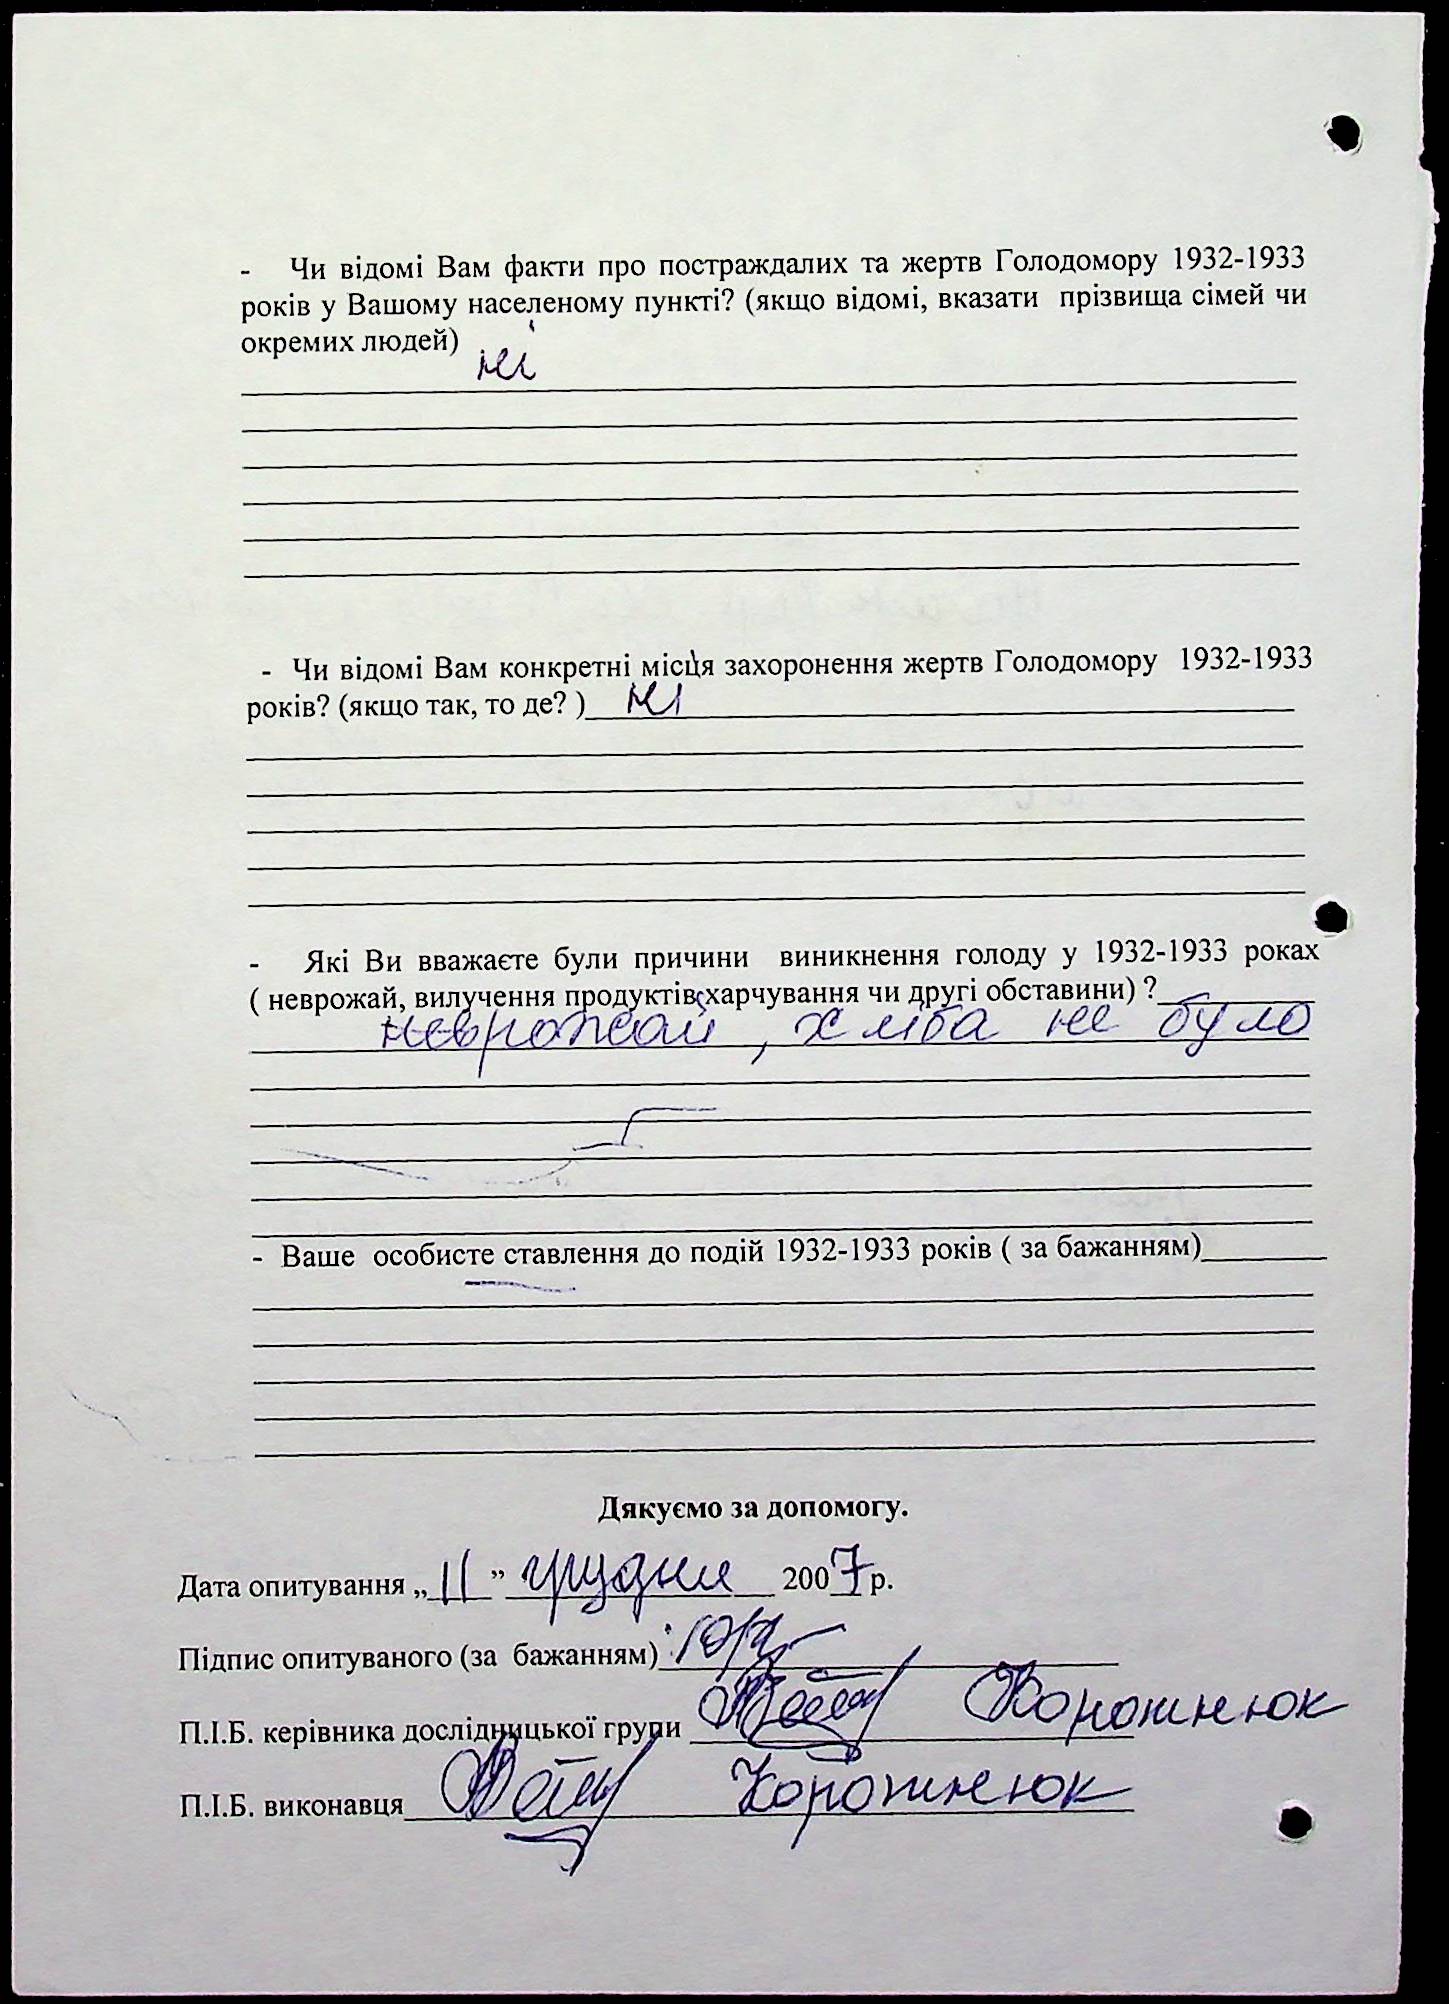 - Чи відомі Вам факти про постраждалих та жертв Голодомору 1932-1933
років у Вашому населеному пункті? (якщо відомі, вказати прізвища сімей чи
окремих людей)
ні
- Чи відомі Вам конкретні місця захоронення жертв Голодомору 1932-1933
років? (якщо так, то де? ) ні
- Які Ви вважаєте були причини виникнення голоду у 1932-1933 роках
( неврожай, вилучення продуктів харчування чи другі обставини) ?
неврожай, хліба не було
- Ваше особисте ставлення до подій 1932-1933 років ( за бажанням)
Дякуємо за допомогу.
Дата опитування „ 11 ” грудня 2007 р.
Підпис опитуваного (за бажанням)
П.І.Б. керівника дослідницької групи
П.І.Б. виконавця